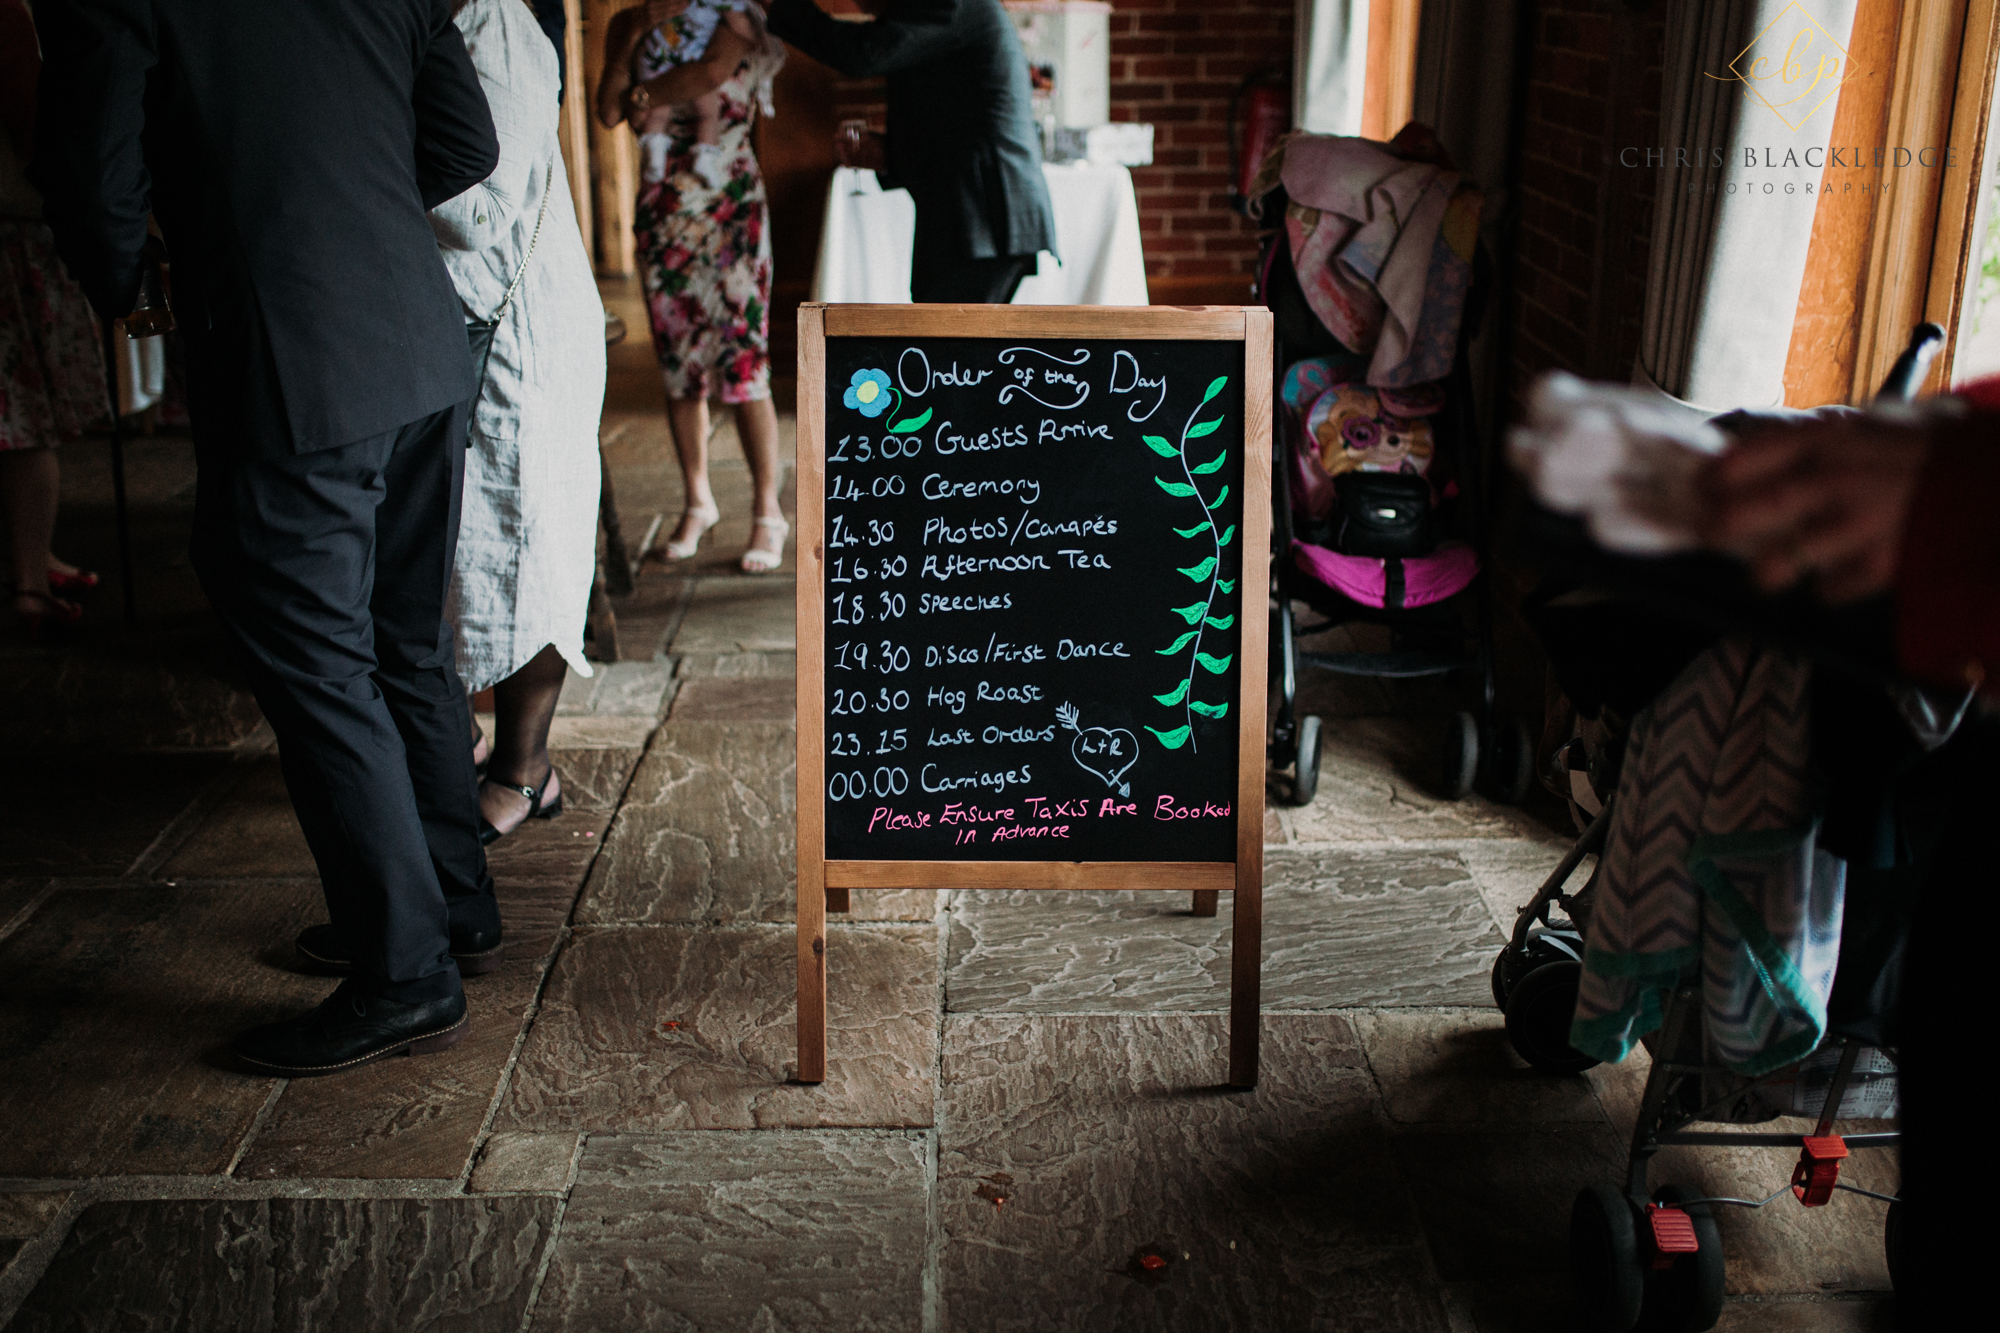 cbp
CHRIS BLACKLEDGE
PHOTOGRAPHY
Order of the Day
13.00 Guests Arrive
14.00 Ceremony
14.30 Photos/Canapés
16.30 Afternoon Tea
18.30 Speeches
19.30 Disco/First Dance
20.30 Hog Roast
23.15 Last Orders
L+R
00.00 Carriages
Please Ensure Taxis Are Booked
In Advance